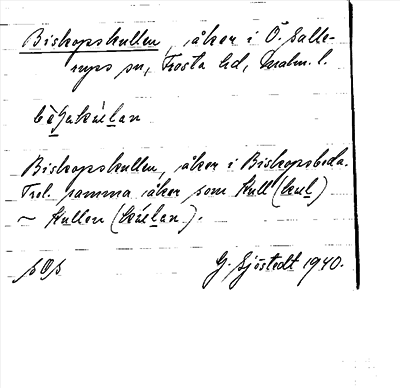 Biskopskullen, åker i Ö. Salle-
rups sn, Frosta hd, Malm. l.
Biskopskullen, åker i Biskopsboda.
Trol. samma åker som Kull (kul)
~ Kullen (
G. Sjöstedt 1940.